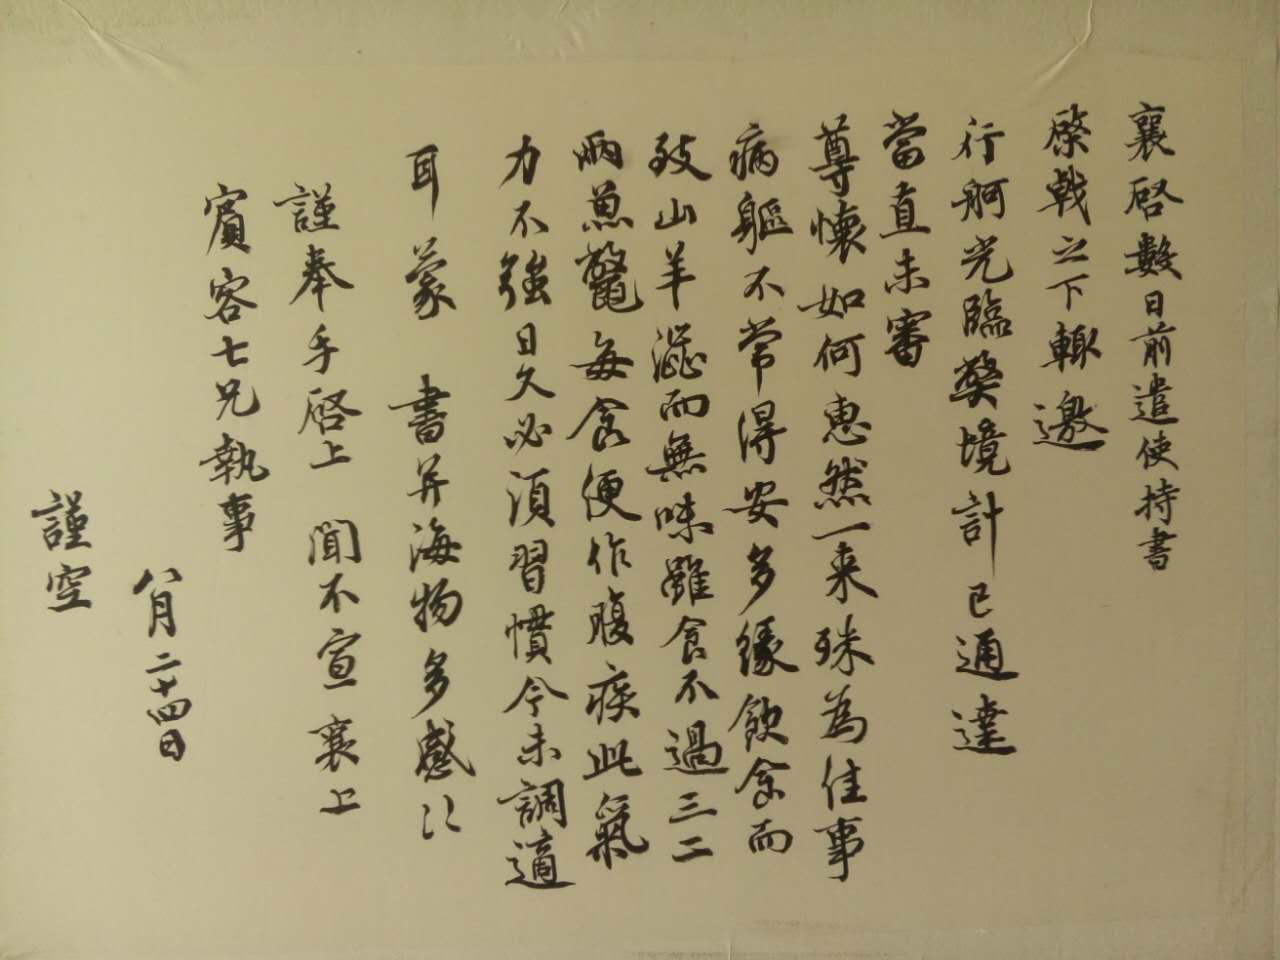 襄啓數日前遣使持書
棨戟之下輙邀
行舸光臨獘境計已通達
當直未審
尊懷如何惠然一来殊為佳事
病軀不常得安多緣飲食而
致山羊澁而無味雖食不過三二
兩魚鼈每食便作腹疾此氣
力不強日久必須習慣今未調適
耳蒙 書并海物多感〻
謹奉手啓上 聞不宣襄上
賓客七兄執事
八月二十四日
謹空